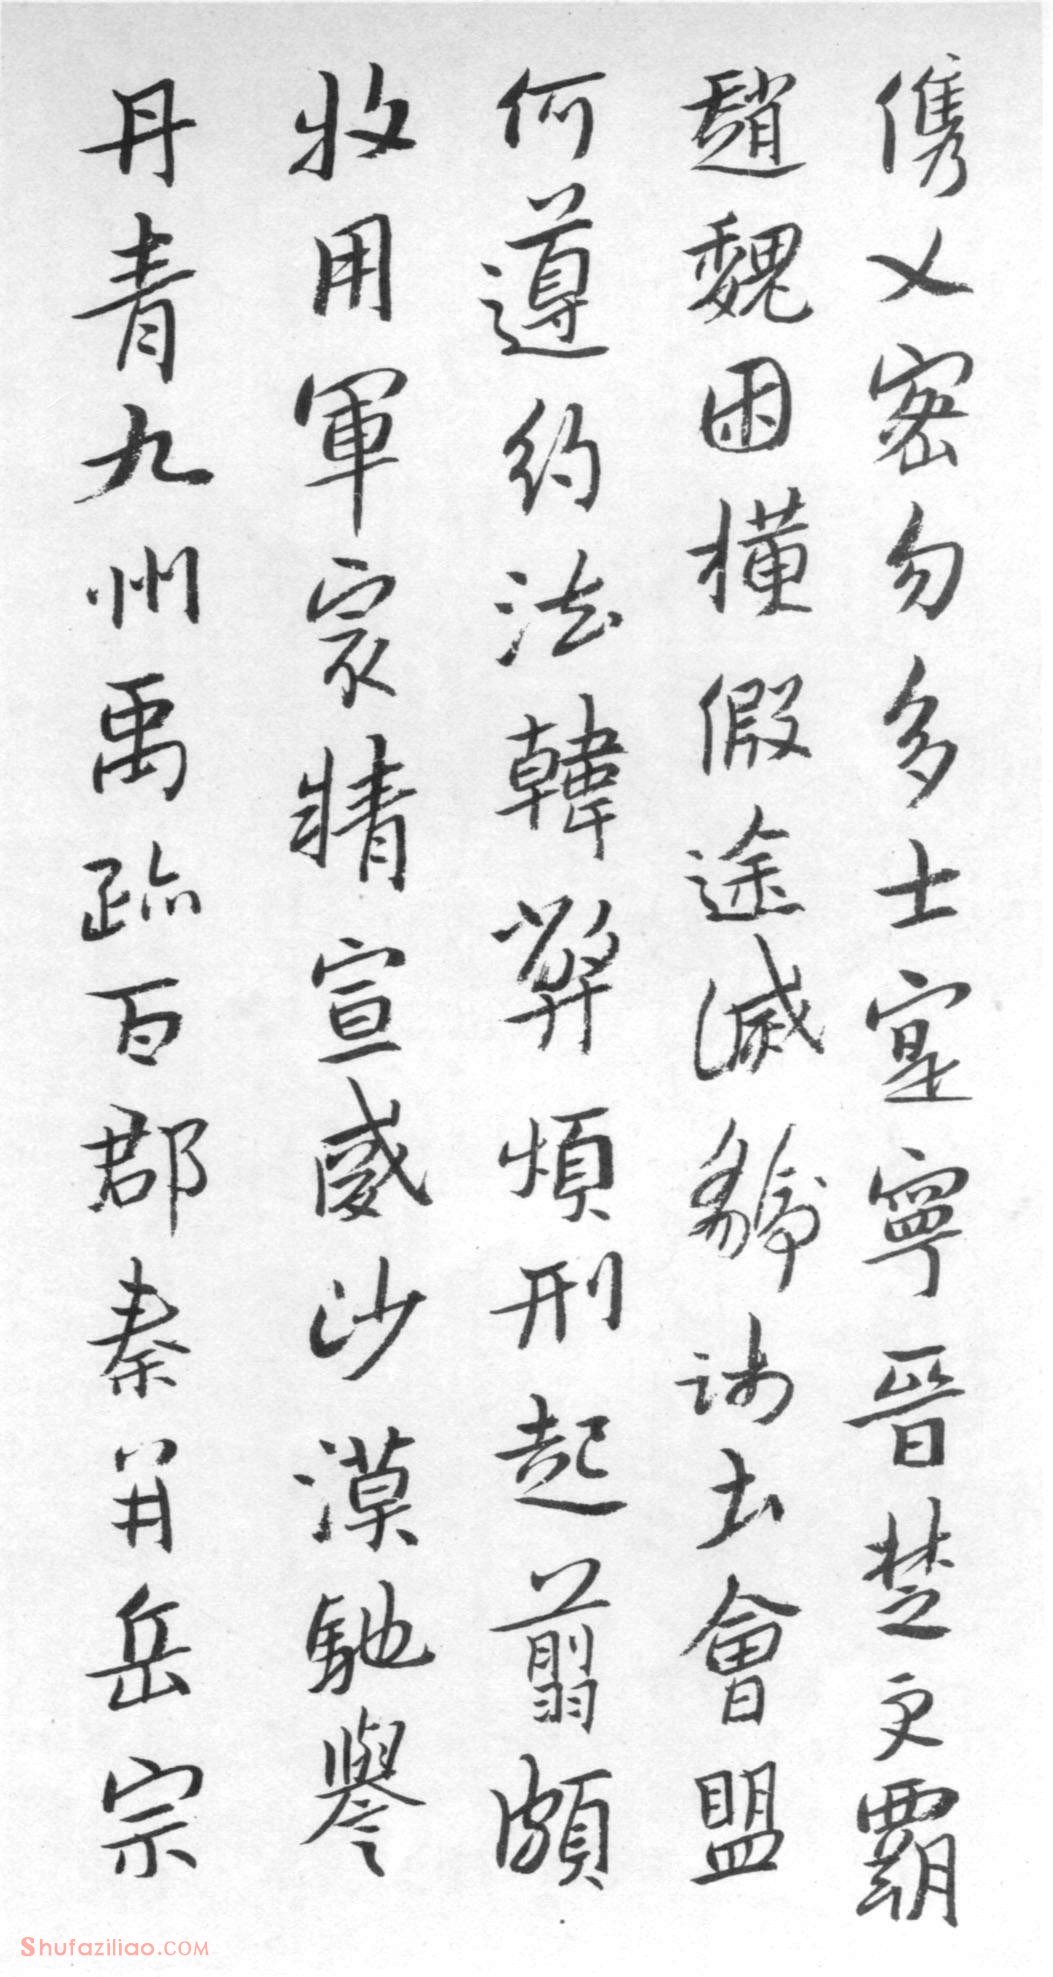 儁乂密勿多士寔寧晉楚更霸
趙魏困橫假途滅虢踐土會盟
何遵約法韓弊煩刑起翦頗
牧用軍宸精宣威沙漠馳譽
丹青九州禹跡百郡秦并岳宗
Shufaziliao.COM